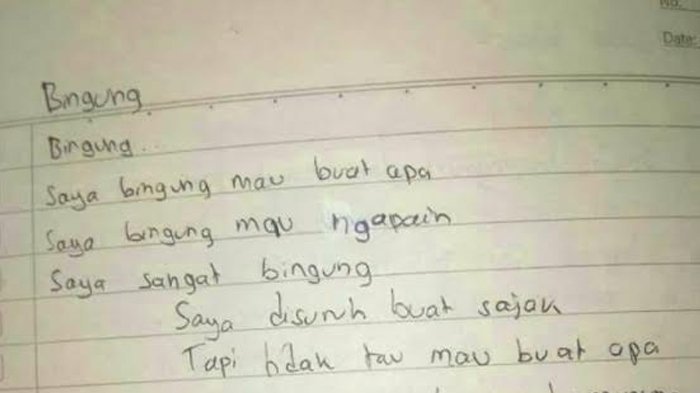 No.
Date:
Bingung
Bingung..
Saya bingung mau buat apa
Saya bingung mau ngapain
Saya sangat bingung
Saya disuruh buat sajak
Tapi tidak tau mau buat apa